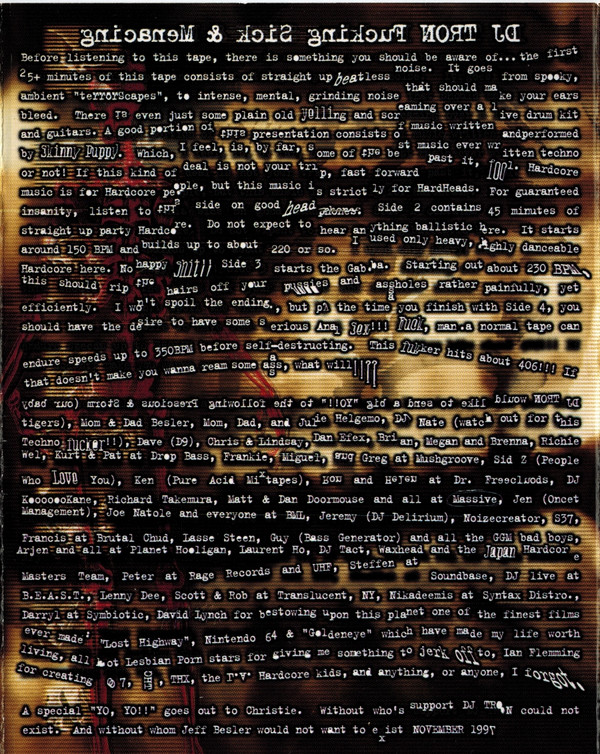 DJ TRON Fucking Sick & Menacing
Before listening to this tape, there is something you should be aware of...the first
25+ minutes of this tape consists of straight up beatless noise. It goes from spooky,
ambient "teRRORscapes", to intense, mental, grinding noise that should make your ears
bleed. There is even just some plain old yelling and screaming over a live drum kit
and guitars. A good portion of this presentation consists of music written andperformed
by Skinny Puppy. Which, I feel, is, by far, some of the best music ever written techno
or not! If this kind of deal is not your trip, fast forward past it, fool. Hardcore
music is for Hardcore people, but this music is strictly for HardHeads. For guaranteed
insanity, listen to this side on good head phones. Side 2 contains 45 minutes of
straight up party Hardcore. Do not expect to hear anything ballistic here. It starts
around 150 BPM and builds up to about 220 or so. I used only heavy, highly danceable
Hardcore here. No happy shit!! Side 3 starts the Gabba. Starting out about 230 BPM,
this should rip the hairs off your pussies and assholes rather painfully, yet
efficiently. I won't spoil the ending, but by the time you finish with Side 4, you
should have the desire to have some serious Anal Sex!!! Fuck, man.a normal tape can
endure speeds up to 350BPM before self-destructing. This fukker hits about 406!!! If
that doesn't make you wanna ream some ass, what will!!??
DJ TRON would like to send a big "YO!!" to the following Precious & Storm (our baby
tigers), Mom & Dad Besler, Mom, Dad, and Julie Helgemo, DJ Nate (watch out for this
Techno fucker!!), Dave (D9), Chris & Lindsay, Dan Efex, Brian, Megan and Brenna, Richie
Wel, Kurt & Pat at Drop Bass, Frankie, Miguel, and Greg at Mushgroove, Sid Z (People
Who Love You), Ken (Pure Acid Mixtapes), Ron and at Dr. Freeclouds, DJ
KoooooKane, Richard Takemura, Matt & Dan Doormouse and all at Massive, Jen (Oncet
Management), Joe Natole and everyone at BML, Jeremy (DJ Delirium), Noizecreator, S37,
Francis at Brutal Chud, Lasse Steen, Guy (Bass Generator) and all the GGM bad boys,
Arjen and all at Planet Hooligan, Laurent Ho, DJ Tact, Waxhead and the Japan Hardcore
Masters Team, Peter at Rage Records and UHF, Steffen at Soundbase, DJ live at
B.E.A.S.T., Lenny Dee, Scott & Rob at Translucent, NY, Nikadeemis at Syntax Distro.,
Darryl at Symbiotic, David Lynch for bestowing upon this planet one of the finest films
ever made: "Lost Highway", Nintendo 64 & "Goldeneye" which have made my life worth
living, all hot Lesbian Porn stars for giving me something to jerk off to, Ian Flemming
for creating 007, THX, the Hardcore kids, and anything, or anyone, I forgot..
A special "YO, YO!!" goes out to Christie. Without who's support DJ TRON could not
exist. And without whom Jeff Besler would not want to exist NOVEMBER 1997